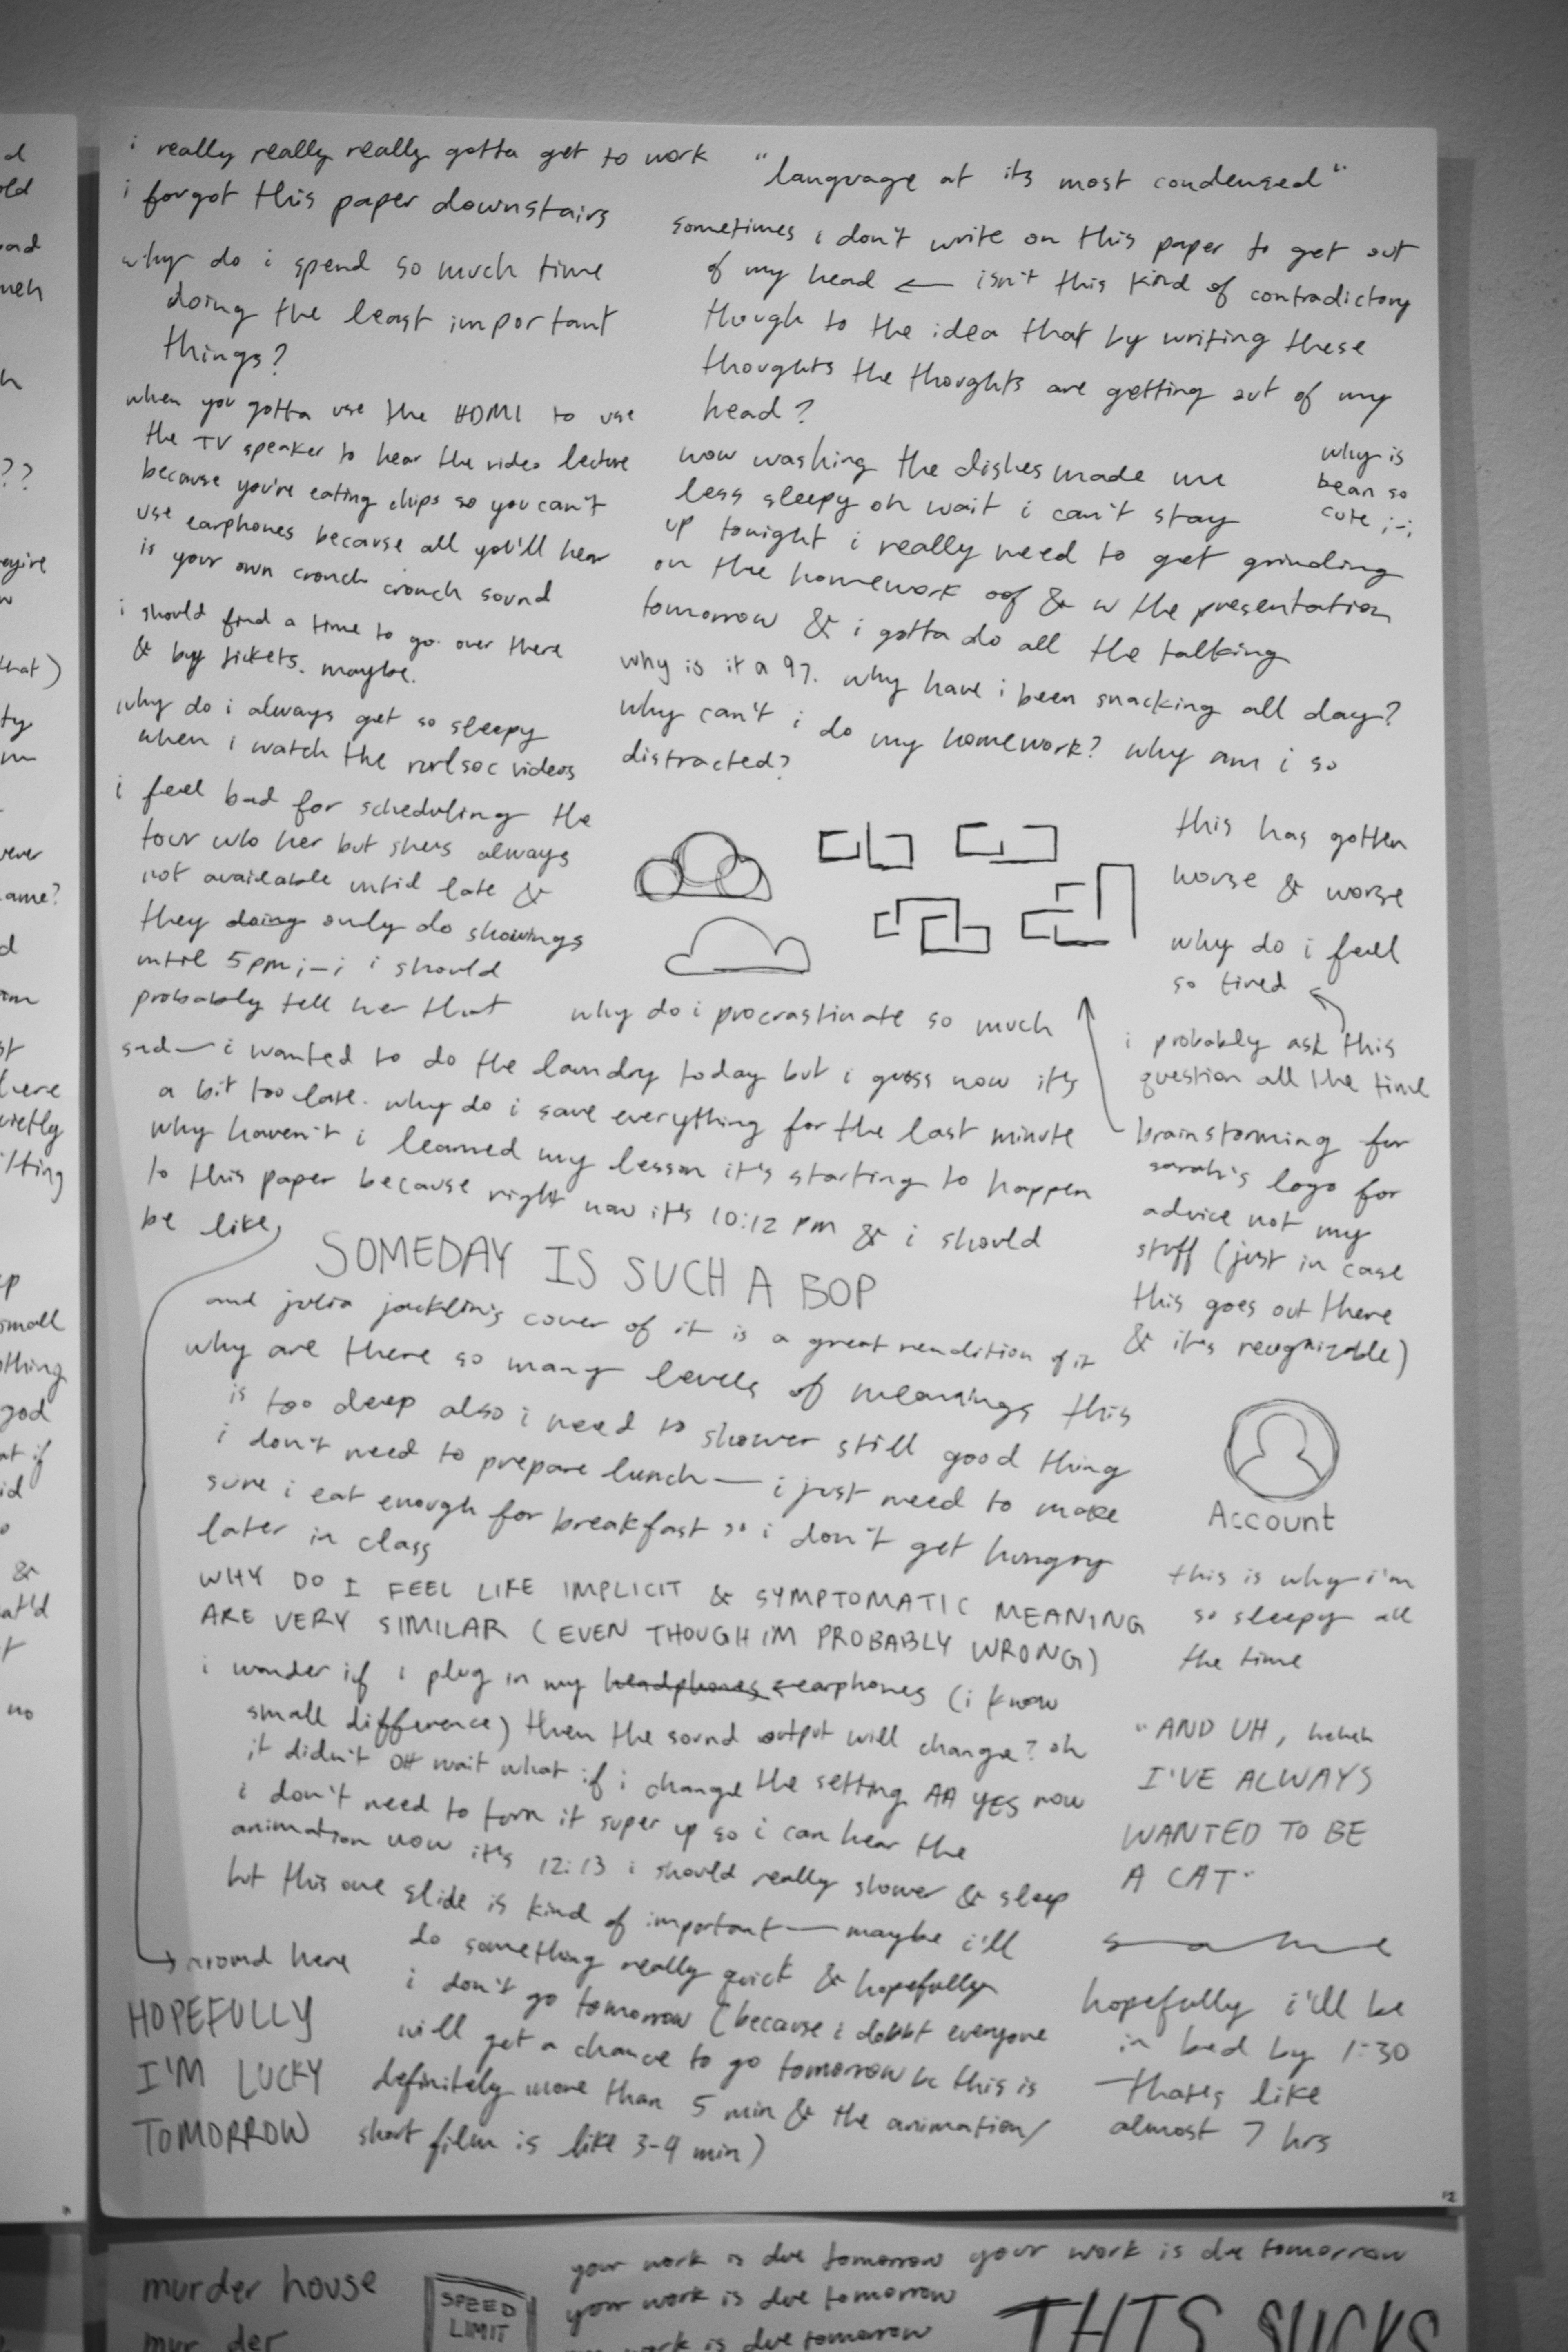 i really really really gotta get to work
i forgot this paper downstairs
why do i spend so much time
doing the least important
things?
when you gotta use the HDMI to use
the TV speaker to hear the video lecture
because you're eating chips so you can't
use earphones because all you'll hear
is your own crunch crunch sound
i should find a time to go over there
& buy tickets. maybe.
why do i always get so sleepy
when i watch the videos
i feel bad for scheduling the
tour w/o her but she's always
not available until late &
they doing only do showings
until 5pm ;-; i should
probably tell her that
"language at its most condensed"
sometimes i don't write on this paper to get out
of my head ← isn't this kind of contradictory
though to the idea that by writing these
thoughts the thoughts are getting out of my
head?
now washing the dishes made me
less sleepy oh wait i can't stay
up tonight i really need to get grinding
on the homework oof & w the presentation
tomorrow & i gotta do all the talking
why is
bean so
cute ;-;
why is it a 97. why have i been snacking all day?
why can't i do my homework? why am i so
distracted?
this has gotten
worse & worse
why do i feel
so tired
i probably ask this
question all the time
brainstorming for
sarah's logo for
advice not my
stuff (just in case
this goes out there
& it's recognizable)
why do i procrastinate so much
sad— i wanted to do the laundry today but i guess now it's
a bit too late. why do i save everything for the last minute
why haven't i learned my lesson it's starting to happen
to this paper because right now it's 10:12 PM & i should
be like
SOMEDAY IS SUCH A BOP
and julia jacklin's cover of it is a great rendition of it
why are there so many levels of meanings this
is too deep also i need to shower still good thing
i don't need to prepare lunch— i just need to make
sure i eat enough for breakfast so i don't get hungry
later in class
WHY DO I FEEL LIKE IMPLICIT & SYMPTOMATIC MEANING
ARE VERY SIMILAR (EVEN THOUGH IM PROBABLY WRONG)
i wonder if i plug in my headphones earphones (i know
small difference) then the sound output will change? oh
it didn't OH wait what if i change the setting AA YES now
i don't need to turn it super up so i can hear the
animation now it's 12:13 i should really shower & sleep
but this one slide is kind of important— maybe i'll
do something really quick & hopefully
i don't go tomorrow (because i doubt everyone
will get a chance to go tomorrow bc this is
definitely more than 5 min & the animation/
short film is like 3-4 min)
Account
this is why i'm
so sleepy all
the time
"AND UH, heheh
I'VE ALWAYS
WANTED TO BE
A CAT"
same
hopefully i'll be
in bed by 1:30
that's like
almost 7 hrs
around here
HOPEFULLY
I'M LUCKY
TOMORROW
12
murder house
mur der
SPEED
LIMIT
your work is due tomorrow your work is due tomorrow
your work is due tomorrow
work is due tomorrow
THIS SUCKS